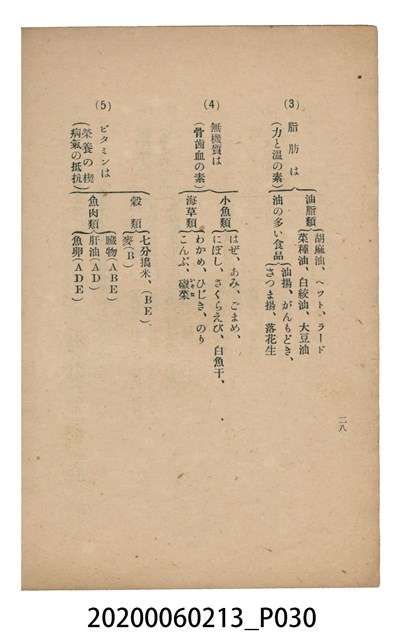 (3) 脂肪は
(力と温の素)
油脂類
胡麻油、ヘット、ラード
菜種油、白絞油、大豆油
油の多い食品
油揚、がんもどき、
さつま揚、落花生
(4) 無機質は
(骨歯血の素)
小魚類
はぜ、あみ、ごまめ、
にぼし、さくらえび、白魚干、
海草類
わかめ、ひじき、のり
こんぶ、磯菜
(5) ビタミンは
(栄養の楔
病氣の抵抗)
穀類
七分搗米、(BE)
麥(B)
魚肉類
臓物(ABE)
肝油(AD)
魚卵(ADE)
二八
20200060213_P030